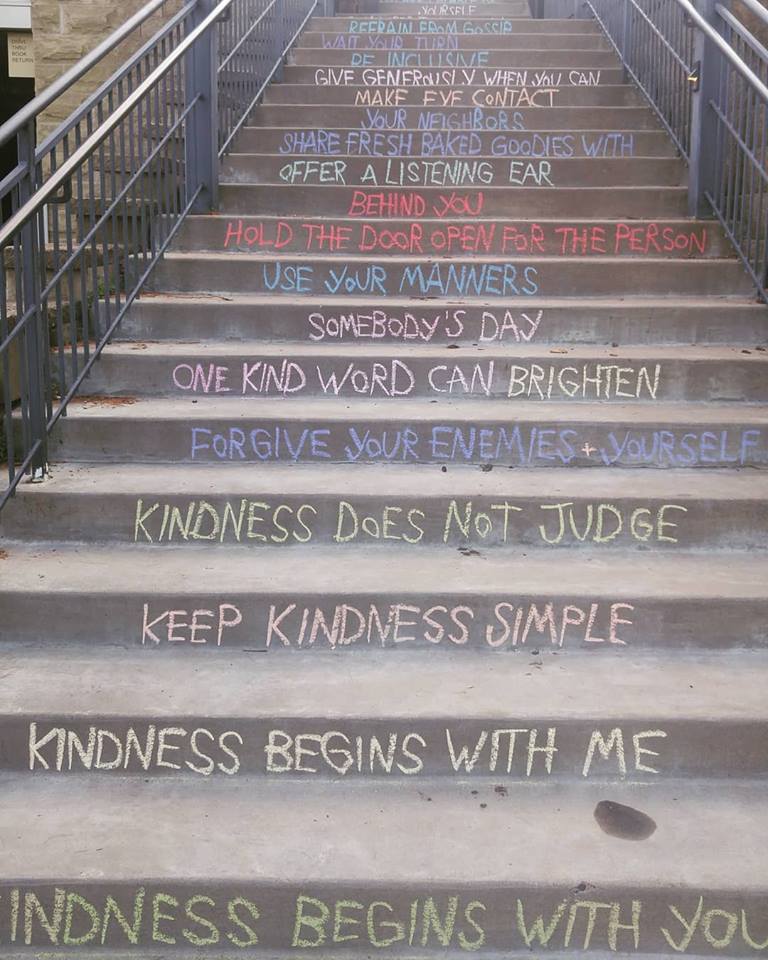 YOURSELF
REFRAIN FROM GOSSIP
WAIT YOUR TURN
BE INCLUSIVE
GIVE GENEROUSLY WHEN YOU CAN
MAKE EYE CONTACT
YOUR NEIGHBORS
SHARE FRESH BAKED GOODIES WITH
OFFER A LISTENING EAR
BEHIND YOU
HOLD THE DOOR OPEN FOR THE PERSON
USE YOUR MANNERS
SOMEBODY'S DAY
ONE KIND WORD CAN BRIGHTEN
FORGIVE YOUR ENEMIES + YOURSELF
KINDNESS DOES NOT JUDGE
KEEP KINDNESS SIMPLE
KINDNESS BEGINS WITH ME
INDNESS BEGINS WITH YOU
THRU
BOOK
RETURN